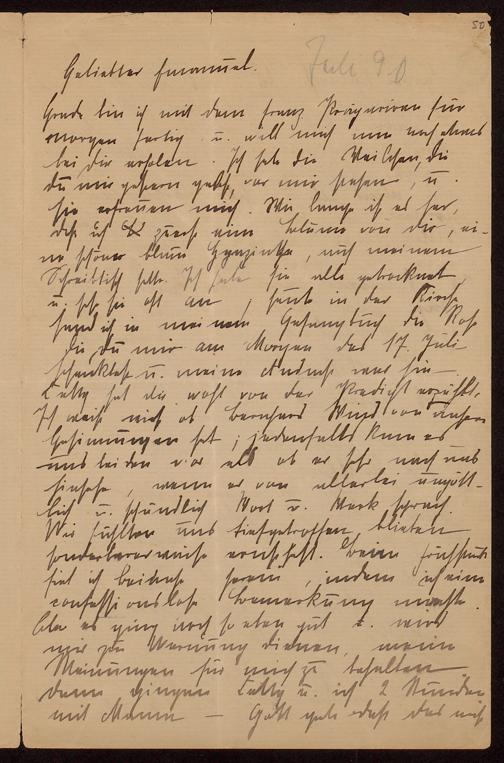 50
Juli 90
Geliebter Emanuel.
Grade bin ich mit dem franz. Präpariren für
morgen fertig u. will mich nun noch etwas
bei dir erholen. Ich habe die Veilchen, die
du mir gestern gabst, vor mir stehen, u.
sie erfreuen mich. Wie lange ist es her,
daß ich zuerst eine Blume von dir, ei-
ne schöne blaue Hyazinthe, auf meinem
Schreibtisch hatte. Ich habe sie alle getrocknet
u. seh sie oft an, heute in der Kirche
fand ich in meinem Gesangbuch die Rose
die du mir am Morgen des 17. Juli
schenktest u. meine Andacht war hin
hat dir wohl von der Predigt erzählt.
Ich weiß nicht ob Wind von unsern
Gesinnungen hat; jedenfalls kam es
uns beiden vor als ob er sehr nach uns
hinsehe, wenn er von allerlei ungött-
lich u. schändlich Wort u. Werk sprach.
Wir fühlten uns tiefgetroffen blieben
sonderbarerweise ernsthaft. Beim Frühstück
fiel ich beinahe herein, indem ich eine
confessionslose Bemerkung machte.
Aber es ging noch so eben gut u. wird
mir zur Warnung dienen, meine
Meinungen für mich zu behalten
dann gingen u. ich 2 Stunden
mit Mama — Gott gebe daß das mich